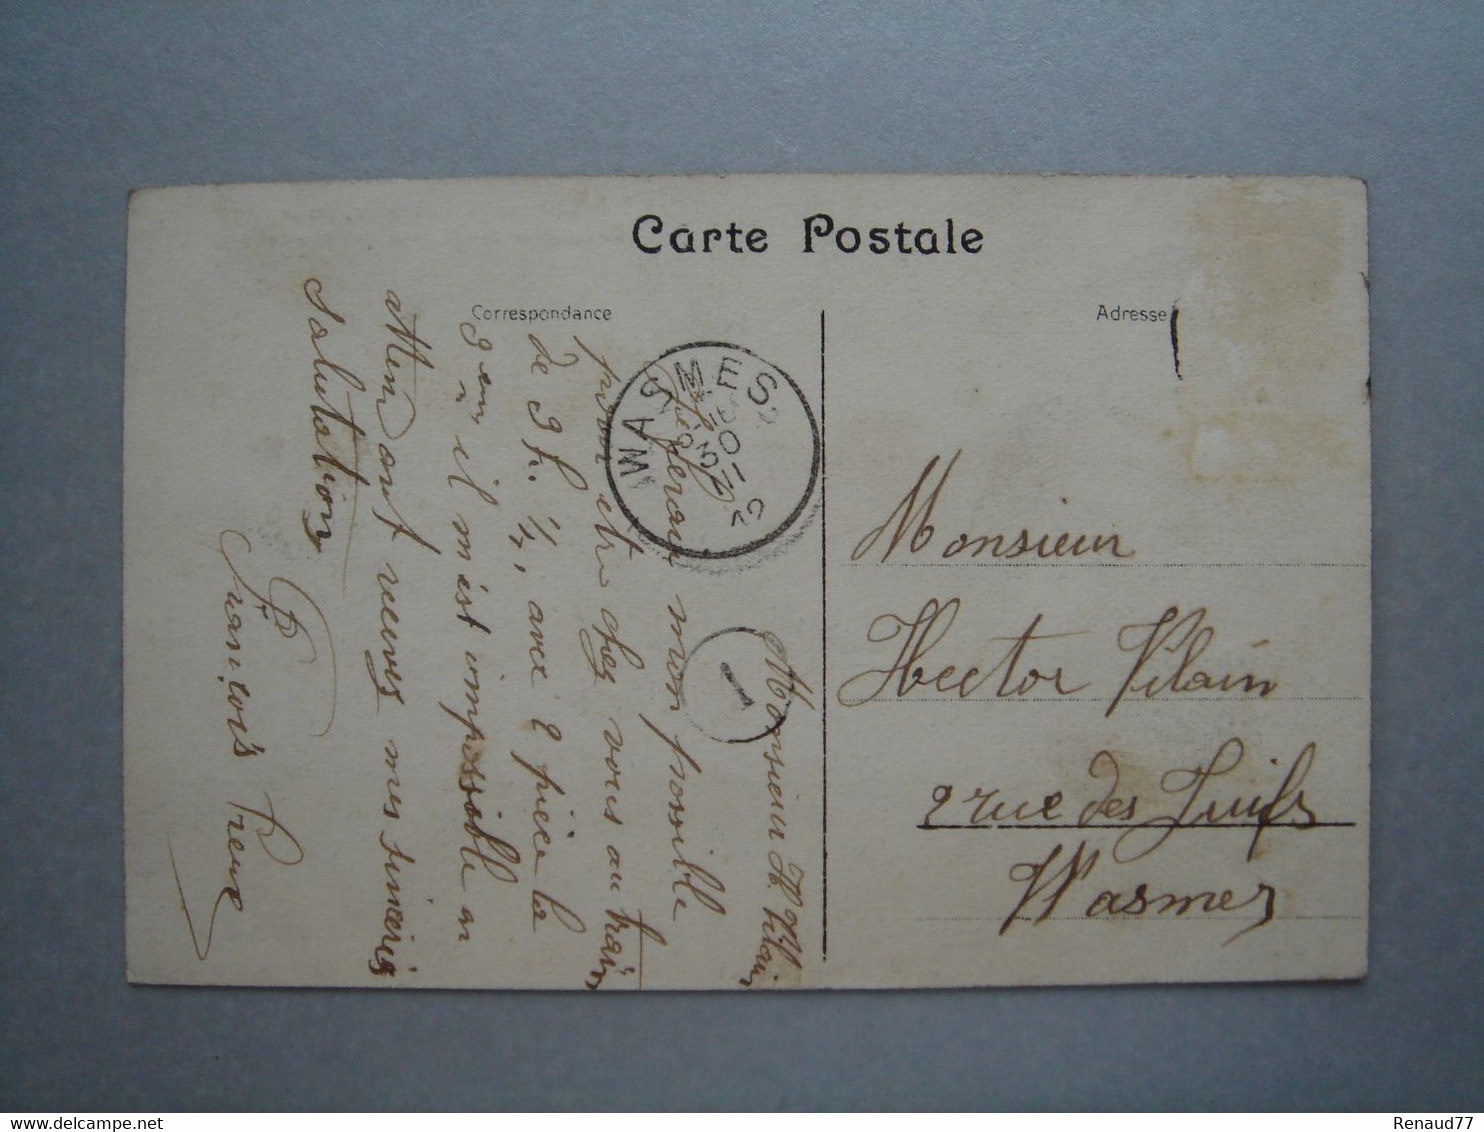 Carte Postale
Correspondance
Adresse
WASMES
10
30
XI
12
1
Monsieur H. Vilain
Je ferai mon possible
pour être chez vous au train
de 9 h. 1/2, avec 2 pièce la
il m'est impossible
recevez mes sincères
salutations
François
Monsieur
Hector Vilain
2 rue des Juifs
Wasmes
Renaud77